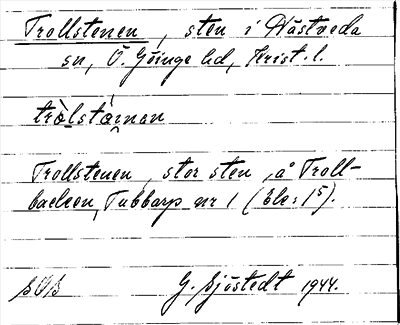 Trollstenen, sten i Hästveda
sn, Ö. Göinge hd, Krist. l.
trɷ̀lstæ̀inan
Trollstenen, stor sten, å Troll-
backen, Tubbarp nr 1 (bl: 1⁵).
G. Sjöstedt 1944.